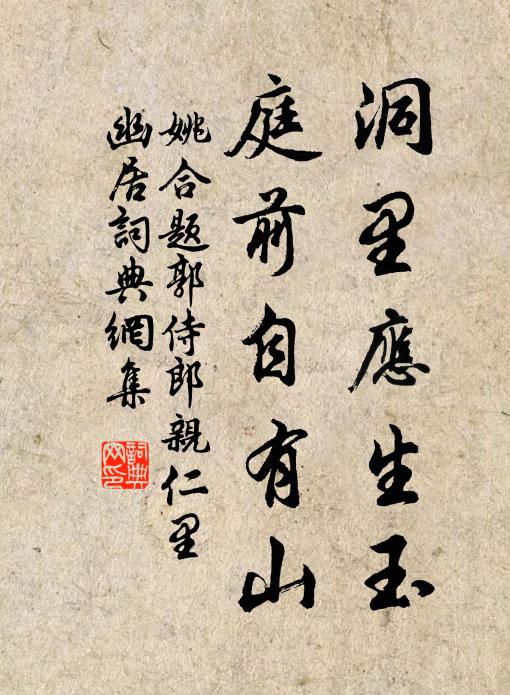 洞里應生玉
庭前自有山
姚合題郭侍郎親仁里
幽居詞典網集
詞典
网印